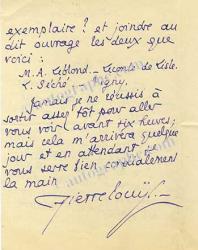 exemplaire ? et joindre au
dit ouvrage les deux que
voici :
M. A. Leblond. _ Leconte de Lisle.
L. Séché. Vigny.
Jamais je ne réussis à
sortir assez tôt pour aller
vous voir avant six heures ;
mais cela m'arrivera quelque
jour et en attendant je
vous serre bien cordialement
la main
Pierre Louÿs